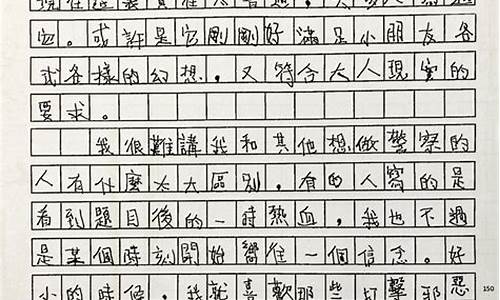 現在這裝實在太普通，太多人
它。或許是它剛剛好滿足小朋友各
式各樣的幻想，又符合大人現實的
要求。
我很難講我和其他想做警察的
人有什麼太大區別，有的人寫的是
看到題目後的一時熱血，我也不過
是某個時刻開始嚮往一個信念。好
小的時候，我就喜歡那些打擊邪惡
150